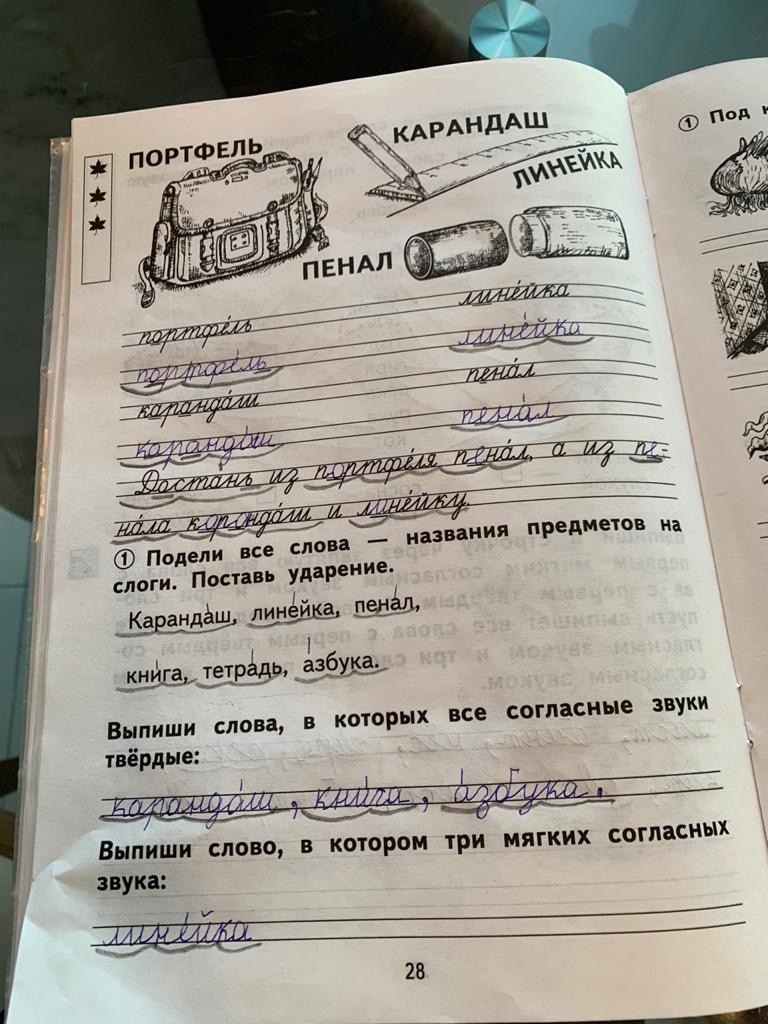 ПОРТФЕЛЬ
КАРАНДАШ
ЛИНЕЙКА
ПЕНАЛ
портфе́ль лине́йка
портфе́ль лине́йка
каранда́ш пена́л
каранда́ш пена́л
Достань из портфе́ля пена́л, а из пе-
на́ла каранда́ш и лине́йку.
① Подели все слова — названия предметов на
слоги. Поставь ударение.
Каранда́ш, лине́йка, пена́л,
кни́га, тетра́дь, а́збука.
Выпиши слова, в которых все согласные звуки
твёрдые:
каранда́ш, кни́га, а́збука.
Выпиши слово, в котором три мягких согласных
звука:
лине́йка
28
① Под